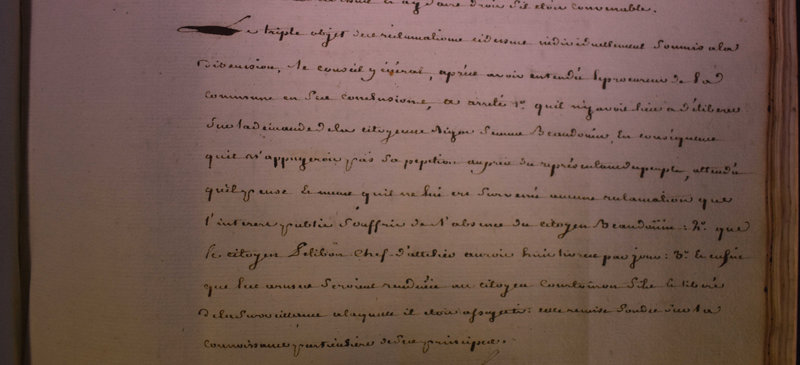 y faire droit s'il etoit convenable.
Le triple objet des reclamations cidessus individuellement soumis ala
discussion, le conseil général, après avoir entendu le procureur de la
commune en ses conclusions, a arrêté 1°. qu'il n'y avoit lieu a délibérer
sur la demande de la citoyenne femme Beaudouin, En consequence
qu'il n'appuyeroit pas sa petition auprès du représentant du peuple, attendu
qu'il pense Et meme qu'il ne lui est survenu aucune reclamation que
l'interet public souffrit de l'absence du citoyen Beaudouin : 2°. que
le citoyen chef d'attelier auroit huit livres par jour : 3°. Et enfin
que les armes seroient rendues au citoyen
dela surveillance a laquelle il etoit assujeti : cette remise fondée sur la
connoissance particuliere de ses principes.